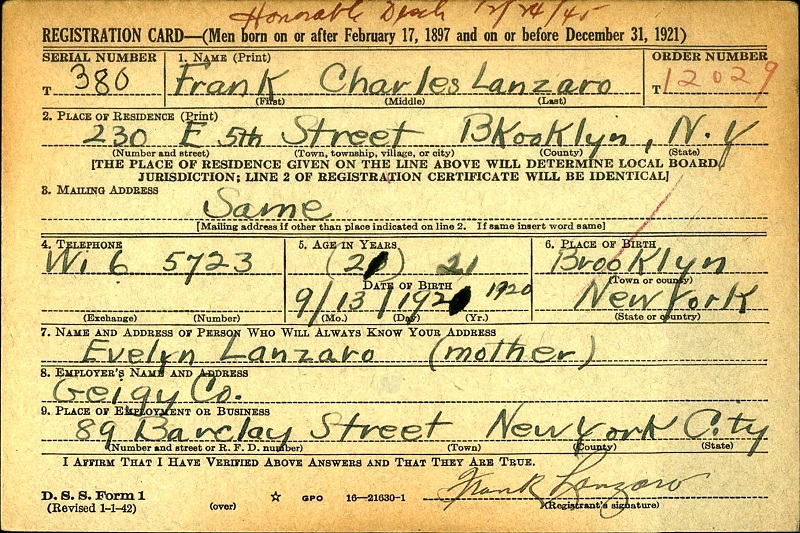 Honorable Disch 12/24/45
REGISTRATION CARD—(Men born on or after February 17, 1897 and on or before December 31, 1921)
SERIAL NUMBER
T 380
1. NAME (Print)
Frank Charles Lanzaro
(First) (Middle) (Last)
ORDER NUMBER
T 12029
2. PLACE OF RESIDENCE (Print)
230 E 5th Street Bkooklyn, N.Y
(Number and street) (Town, township, village, or city) (County) (State)
[THE PLACE OF RESIDENCE GIVEN ON THE LINE ABOVE WILL DETERMINE LOCAL BOARD
JURISDICTION; LINE 2 OF REGISTRATION CERTIFICATE WILL BE IDENTICAL]
3. MAILING ADDRESS
Same
[Mailing address if other than place indicated on line 2. If same insert word same]
4. TELEPHONE
Wi 6 5723
(Exchange) (Number)
5. AGE IN YEARS
21
DATE OF BIRTH
9/13/192 1920
(Mo.) (Day) (Yr.)
6. PLACE OF BIRTH
Brooklyn
(Town or county)
New York
(State or country)
7. NAME AND ADDRESS OF PERSON WHO WILL ALWAYS KNOW YOUR ADDRESS
Evelyn Lanzaro (mother)
8. EMPLOYER'S NAME AND ADDRESS
Geigy Co.
9. PLACE OF EMPLOYMENT OR BUSINESS
89 Barclay Street New York City
(Number and street or R. F. D. number) (Town) (County) (State)
I AFFIRM THAT I HAVE VERIFIED ABOVE ANSWERS AND THAT THEY ARE TRUE.
D. S. S. Form 1
(Revised 1-1-42)
(over)
☆ GPO 16—21630-1
Frank Lanzaro
(Registrant's signature)